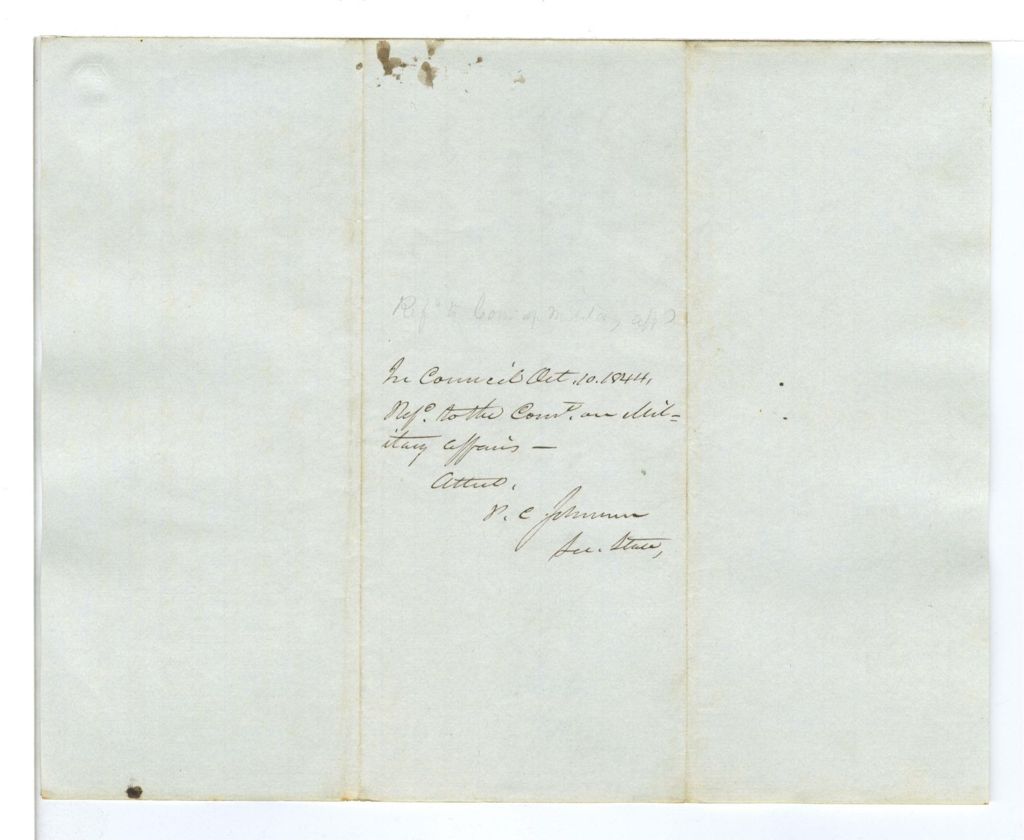 Refd to Com. on Military affs
In Council Oct. 10. 1844,
Refd. to the Comt. on Mil=
itary affairs —
Attest.
P. C Johnson
Sec. State,